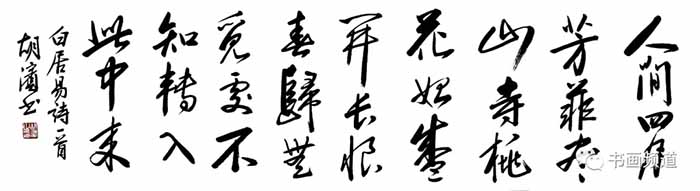 人間四月
芳菲尽
山寺桃
花始盛
開长恨
春歸無
覓處不
知轉入
此中来
白居易詩一首
胡濱书
书画频道